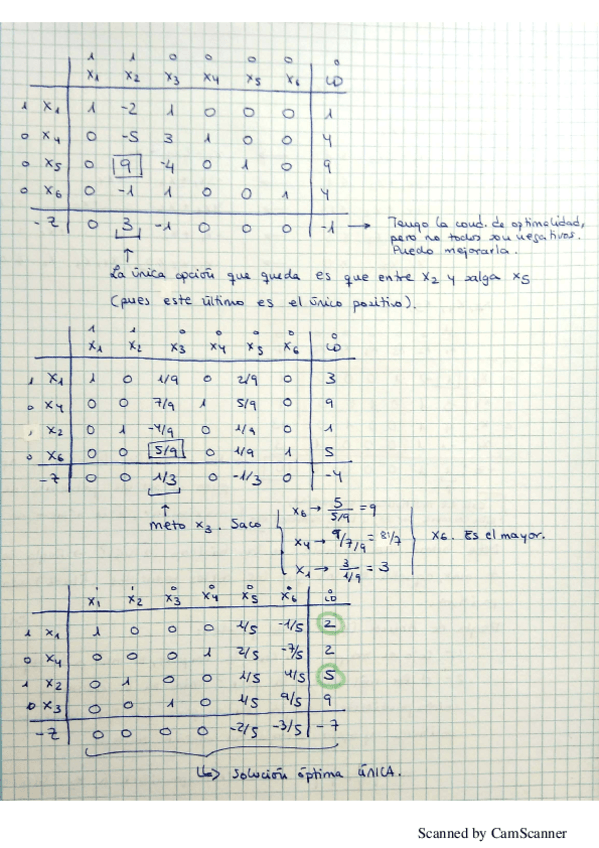 1 1 0 0 0 0 0
x1 x2 x3 x4 x5 x6 LD
1 x1 1 -2 1 0 0 0 1
0 x4 0 -5 3 1 0 0 4
0 x5 0 9 -4 0 1 0 9
0 x6 0 -1 1 0 0 1 4
-z 0 3 -1 0 0 0 -1 → Tengo la cond. de optimalidad,
pero no todos son negativos.
Puedo mejorarla.
La única opción que queda es que entre x2 y salga x5
(pues este último es el único positivo).
1 1 0 0 0 0 0
x1 x2 x3 x4 x5 x6 LD
1 x1 1 0 1/9 0 2/9 0 3
0 x4 0 0 7/9 1 5/9 0 9
1 x2 0 1 -4/9 0 1/9 0 1
0 x6 0 0 5/9 0 1/9 1 5
-z 0 0 1/3 0 -1/3 0 -4
meto x3. Saco
x6 → 5/5/9 = 9
x4 → 9/7/9 = 81/7
x1 → 3/1/9 = 3
x6. Es el mayor.
1 1 0 0 0 0 0
x1 x2 x3 x4 x5 x6 LD
1 x1 1 0 0 0 1/5 -1/5 2
0 x4 0 0 0 1 2/5 -7/5 2
1 x2 0 1 0 0 1/5 4/5 5
0 x3 0 0 1 0 1/5 9/5 9
-z 0 0 0 0 -2/5 -3/5 -7
Solución óptima ÚNICA.
Scanned by CamScanner